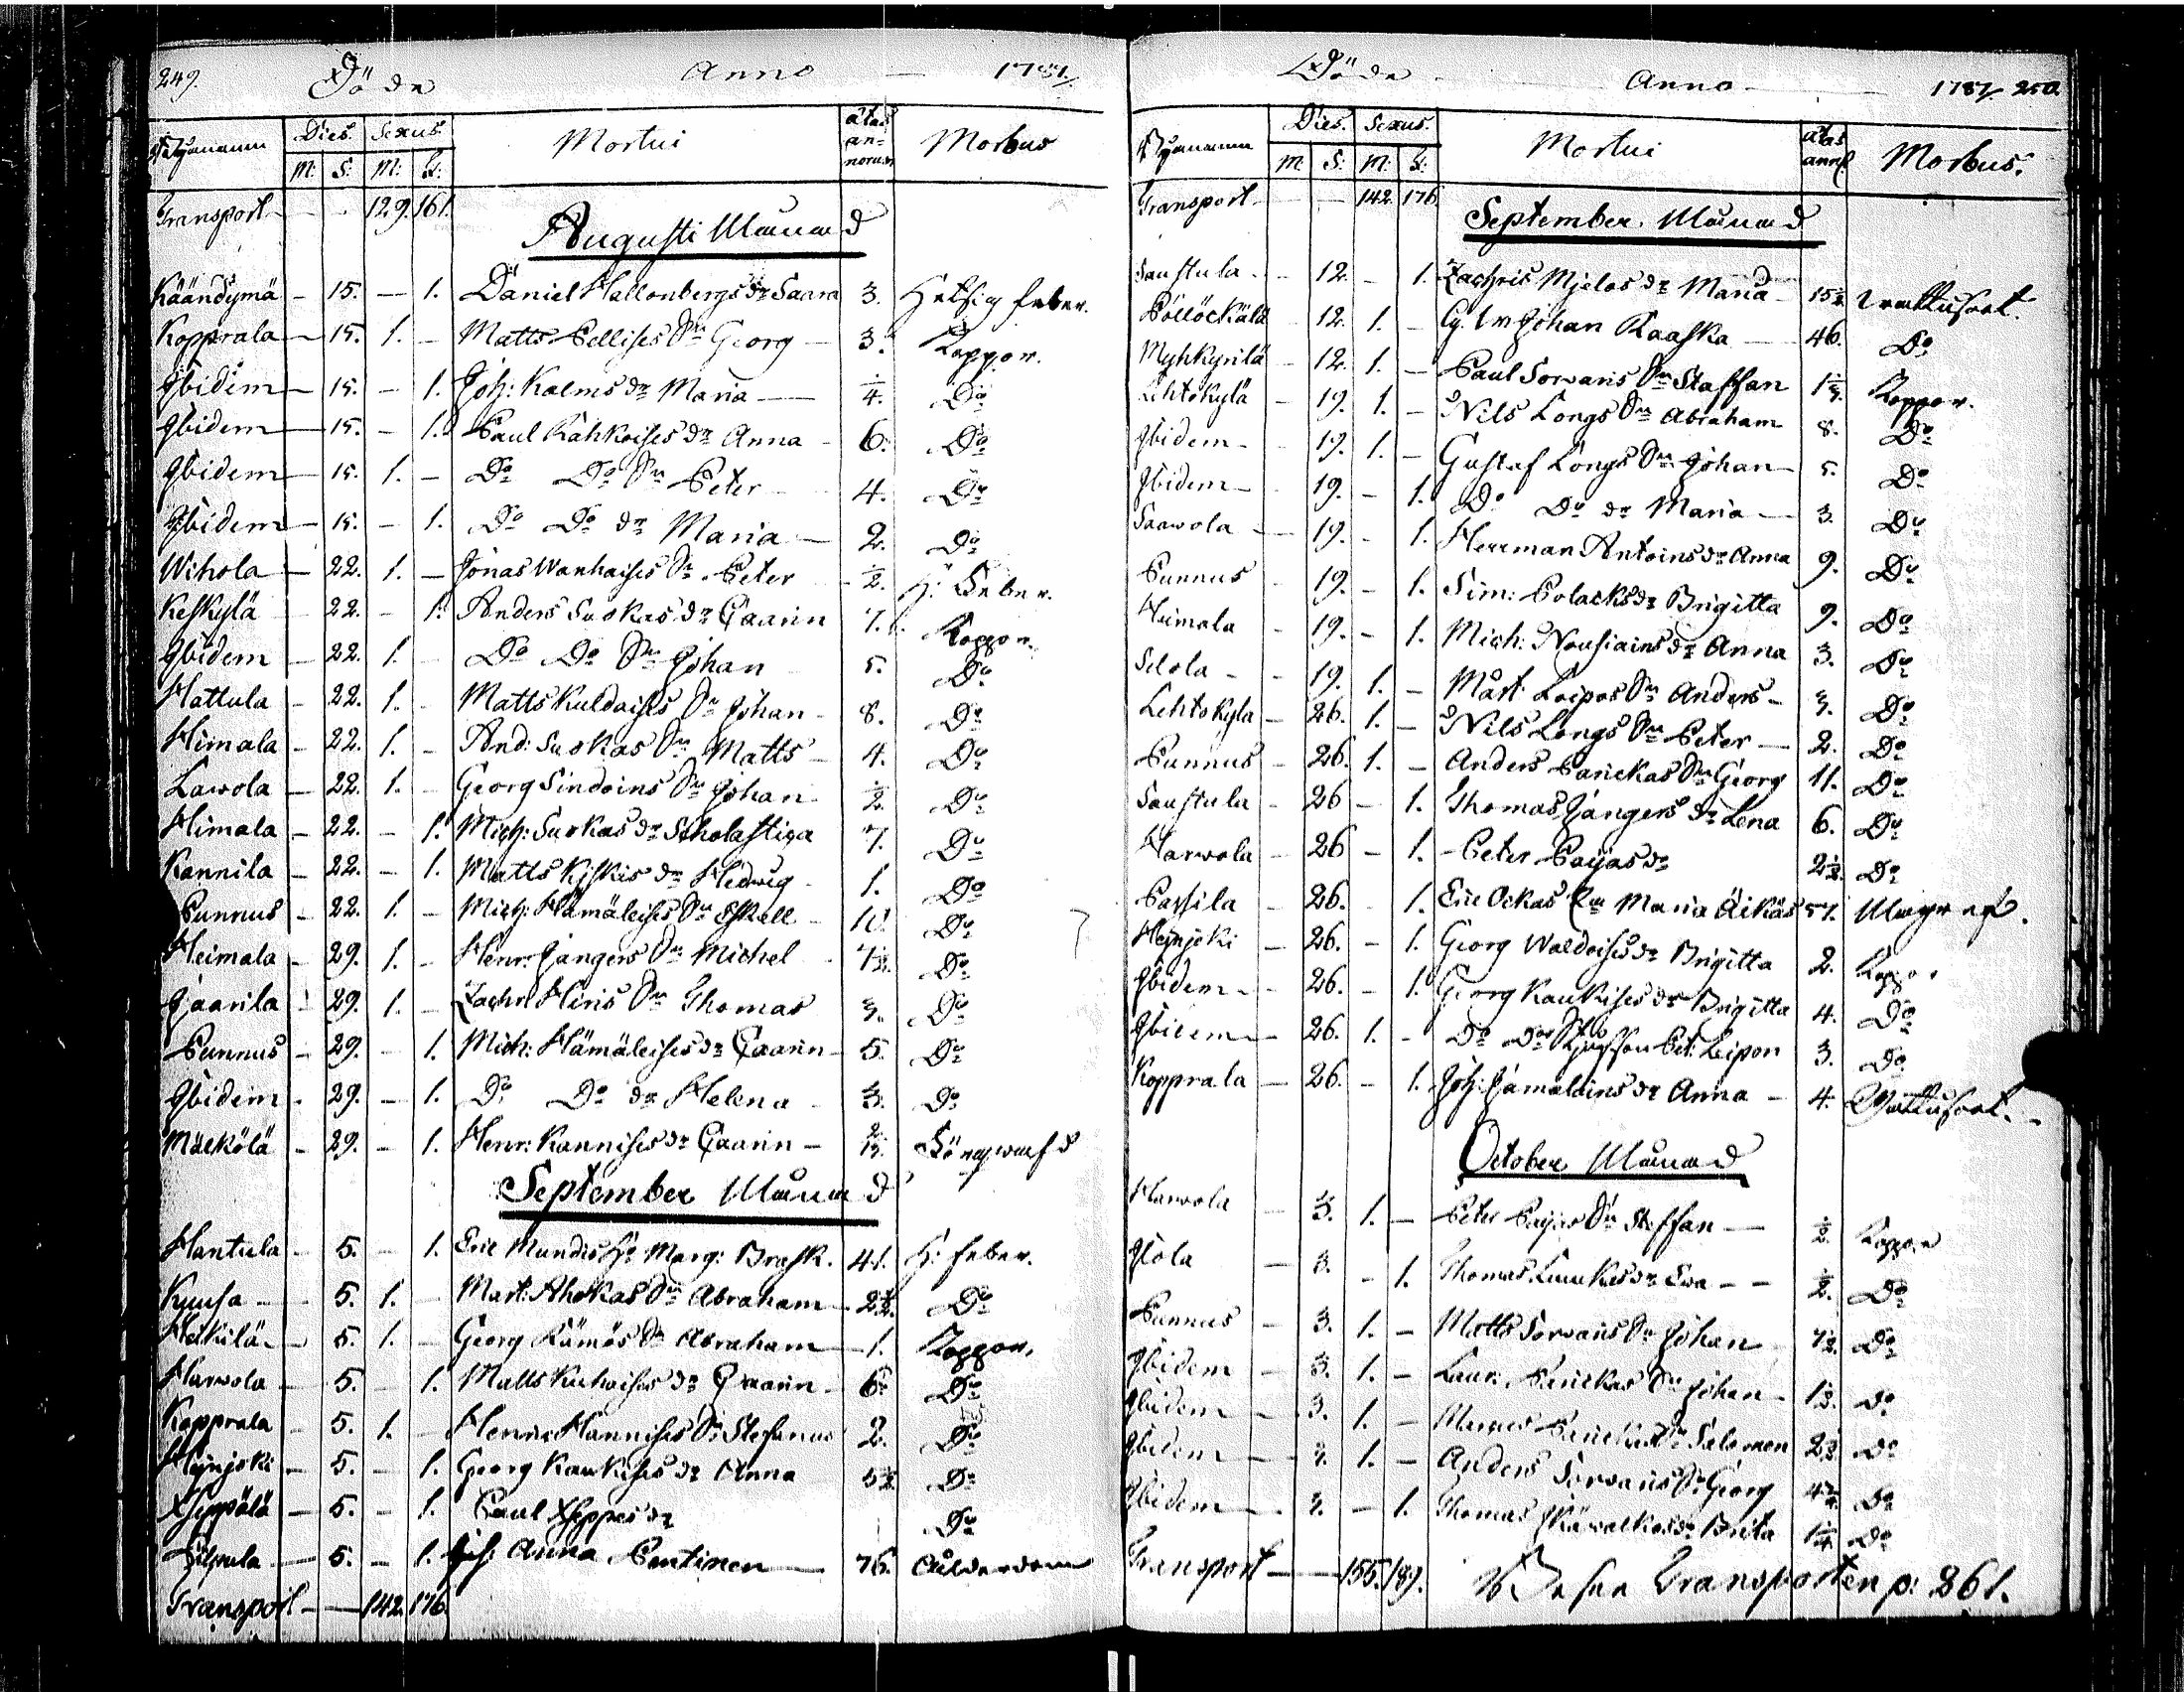 249. Döde Anno 1787/
Dies. Sexus. Mortui ætas annorum Morbus
M: S: M: Q:
Transport - - 129. 161.
Augusti Månad
Käändymä - 15. - 1. Daniel Hallonbergs dr Saara 3. Hetsig feber.
Kopprala - 15. 1. - Matts Pellises Sn Georg - 3. Koppor.
Ibidem - 15. - 1. Joh: Kalms dr Maria - 1/4. Do
Ibidem - 15. - 1. Paul Rähköises dr Anna - 6. Do
Ibidem - 15. 1. - Do Do Sn Peter - 4. Do
Ibidem - 15. - 1. Do Do dr Maria - 2. Do
Wihola - 22. 1. - Jonas Wanhaises Sn Peter 1/2. H: Feber.
Keskylä - 22. - 1. Anders Suokas dr Caarin 7. Koppor.
Ibidem - 22. 1. - Do Do Sn Johan 5. Do
Hattula - 22. 1. - Matts Kuldaises Sn Johan - 8. Do
Himala - 22. 1. - And: Suokas Sn Matts - 4. Do
Lawola - 22. 1. - Georg Sindoins Sn Johan 1/2. Do
Himala - 22. - 1. Mich: Suokas dr Scholastica 7. Do
Kannila - 22. - 1. Matts Kiskis dr Hedwig - 1. Do
Punnus - 22. 1. - Mich: Hämäleises Sn Eskell - 10. Do
Heimala - 29. 1. - Henr: Jangers Sn Michel - 7 1/2. Do
Jaarila - 29. 1. - Zachr: Hiris Sn Thomas 3. Do
Punnus - 29. - 1. Mich: Hämäleises dr Caarin - 5. Do
Ibidem - 29. - 1. Do Do dr Helena - 3. Do
Mälkölä - 29. - 1. Henr: Kannises dr Caarin -
September Månad
Hantula - 5. - 1. Eric Mundis H: Marg: Brask. 41. H: feber.
Kuusa - 5. 1. - Mart: Ahokas Sn Abraham - 2 1/2. Do
Heikilä - 5. 1. - Georg Rämös Sn Abraham - 1. Koppor.
Harwola - 5. - 1. Matts Kuhaises dr Caarin - 6. Do
Kopprala - 5. 1. - Henric Hannises Sn Stefanus 2. Do
Heinjoki - 5. - 1. Georg Kaukises dr Anna 5 1/2. Do
Seppälä - 5. - 1. Paul Seppes dr Do
5. - 1. Anna Pentinen - 76. Ålderdom
Transport - 142. 176
Döde Anno 1787. 250
Dies. Sexus. Mortui ætas ann. Morbus.
M: S: M: Q:
Transport - - 142. 176.
September Månad
Saustula - 12. - 1. Zachris Mielos dr Maria - 15 1/2
Pöllöckälä 12. 1. - Johan Raaska - 46. Do
Myhkyrilä - 12. 1. - Paul Sorvaris Sn Staffan Koppor.
Lehtokylä - 19. 1. - Nils Longs Sn Abraham 8. Do
Ibidem - 19. 1. - Gustaf Longs Sn Johan - 5. Do
Ibidem - 19. - 1. Do Do dr Maria - 3. Do
Saawola - 19. - 1. Herrman Antoins dr Anna 9. Do
Punnus - 19. - 1. Sim: Polacks dr Brigitta 9. Do
Himala - 19. - 1. Mich: Nousiains dr Anna 3. Do
Selola - 19. 1. - Mårt: Loipos Sn Anders - 3. Do
Lehtokyla - 26. 1. - Nils Longs Sn Peter - 2. Do
Punnus - 26. 1. - Anders Parickas Sn Georg 11. Do
Saustula - 26 - 1. Thomas Jangers dr Lena 6. Do
Harwola - 26 - 1. Peter Paijas dr 2 1/2. Do
Passila - 26. - 1. Eric Ockas Maria Äikäs 57.
Heinjoki - 26. - 1. Georg Waldoises dr Brigitta 2. Koppor
Ibidem - 26. - 1. Georg Kaukises dr Brigitta 4. Do
Ibidem - 26. 1. - Do Do Pet: Leipon 3. Do
Kopprala - 26. - 1. Joh: Jämäläins dr Anna - 4.
October Månad
Harwola - 3. 1. - Peter Paijas Sn Staffan - 1/2. Koppor
Ilola - 3. - 1. Thomas Luukas dr Ewa - - 1/2. Do
Punnus - 3. 1. - Matts Sorvaris Sn Johan - 7 1/2. Do
Ibidem - 3. 1. - Laur: Parickas Sn Johan - 1 1/2. Do
Ibidem - 3. 1. - Marcus Parickas Sn Salomon 2 1/2. Do
Ibidem - 3. 1. - Anders Sorvaris Sn Georg Do
Ibidem - 3. - 1. Thomas Skäwalkis dr Brita Do
Transport - - 155. 189. Transporten p: 261.